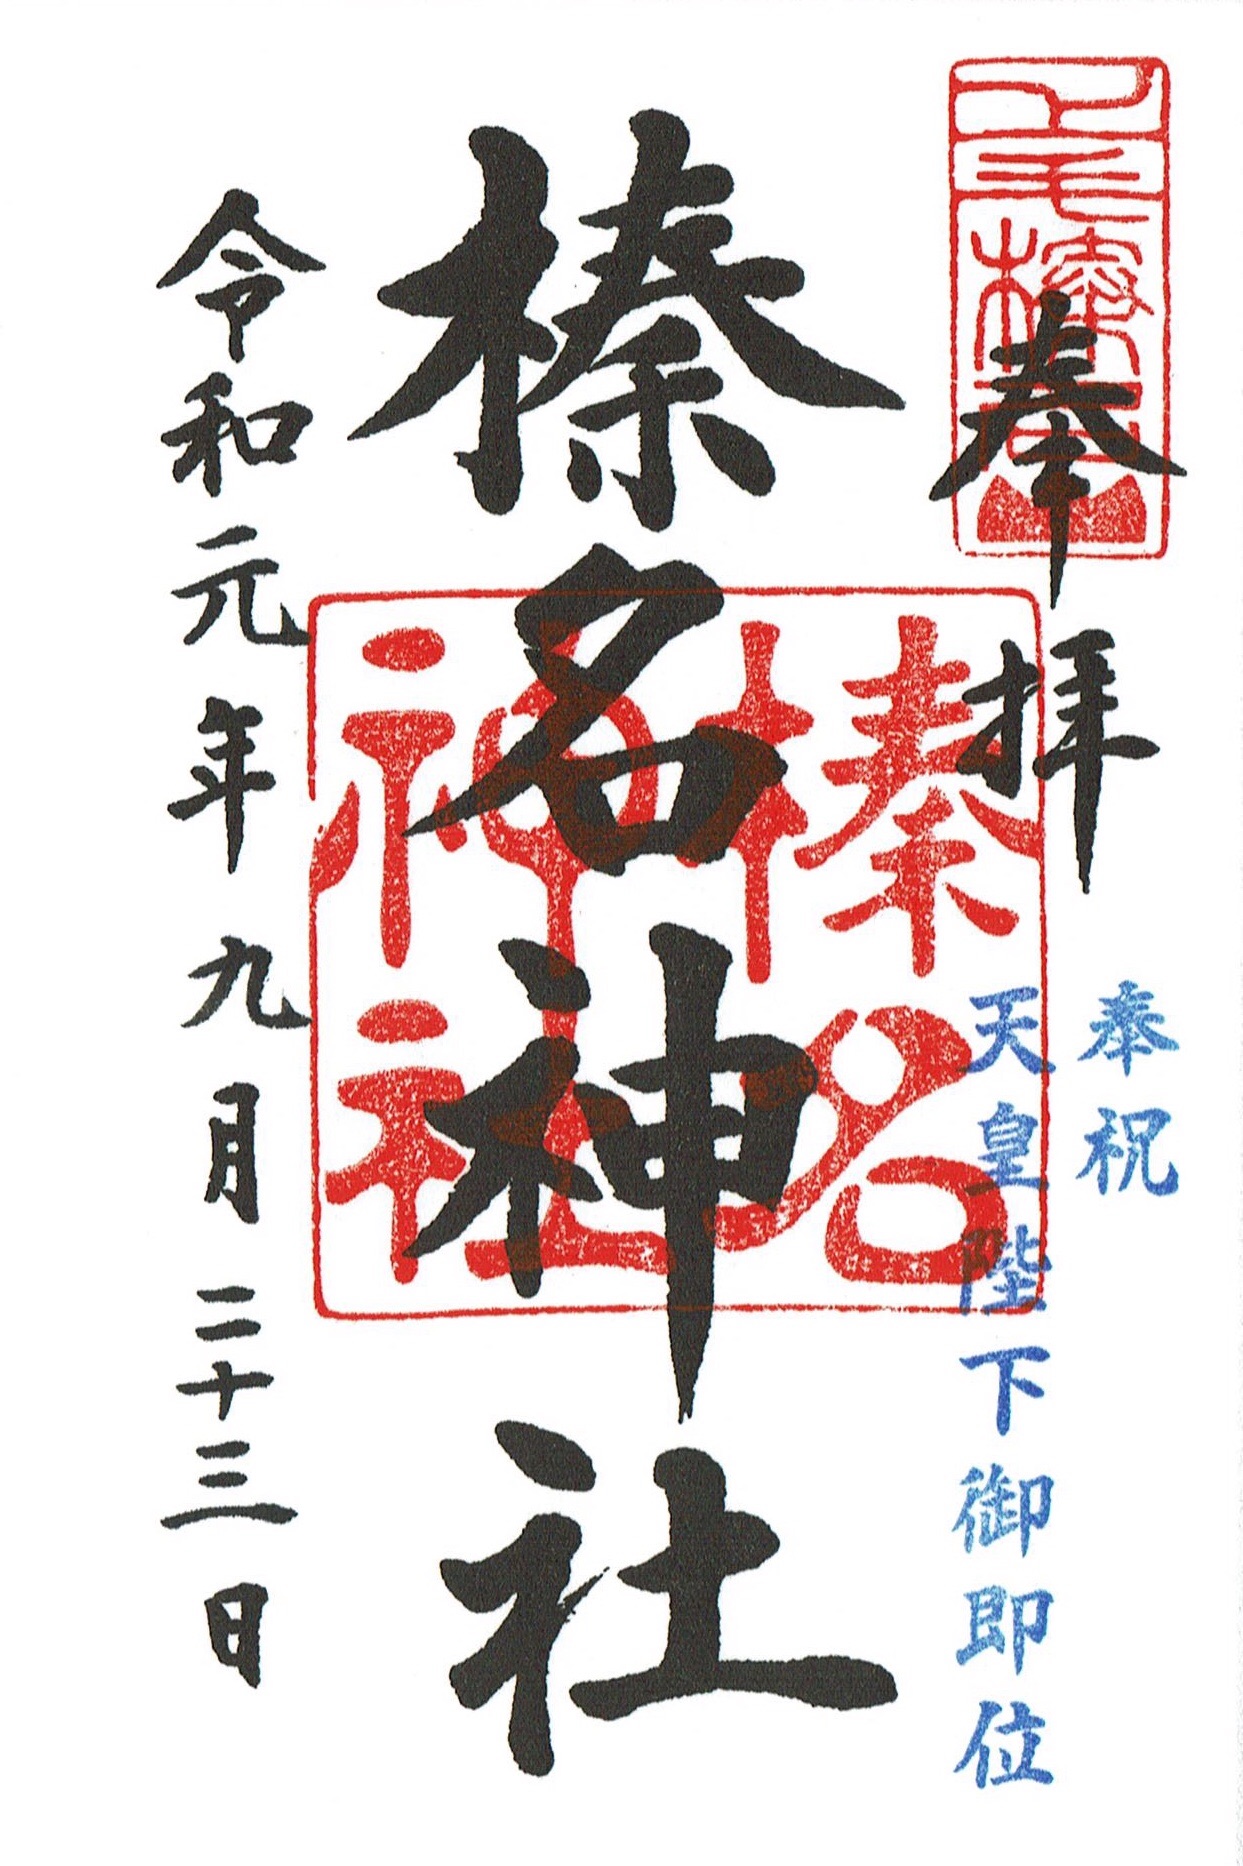 奉拝
奉祝
天皇陛下御即位
榛名神社
榛名
神社
令和元年九月二十三日